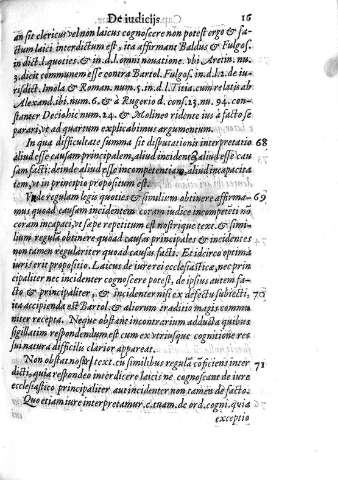 De iudicijs. 16
an sit clericus vel non laicus cognoscere non potest ergo & fa-
ctum laici interdictum est, ita affirmant Baldus & Fulgos.
in dict. l. quoties. & in d. l. omni nouatione. vbi Aretin. nu.
3. dicit communem esse contra Bartol. Fulgos. in d. l. 2. de iu-
risdict. Imola & Roman. 5. num. in d. l. Titia. cum relatis ab
Alexand. ibi. num. 6. & à Rugerio d. cons. 13. nu. 94. con-
stanter Decio hic num. 24. & Molineo ridente ius à facto se
parari, vt ad quartum explicabimus argumentum.
In qua difficultate summa sit disputationis interpretatio 68
aliud esse causam principalem, aliud incidentẽ, aliud esse cau
sam facti: deinde aliud esse incompetentiam, aliud incapacita
tem, vt in principio propositum est.
Vnde regulam legis quoties & similium obtinere affirma- 69
mus quoad causam incidentem coram iudice incompetẽti nõ
coram incapaci, vt sæpe repetitum est nostrique text. & si-
milium regula obtinere quoad causas principales & incidentes
non tamen regulariter quoad causas facti. Et idcirco optima
iuris erit propositio. Laicus de iure rei ecclesiasticæ, nec prin
cipaliter nec incidenter cognoscere potest, de ipsius autem fa-
cto & principaliter, & incidenter nisi ex defectu subiecti, 70
ita accipienda est Bartol. & aliorum traditio magis commu
niter recepta. Neque obstant in contrarium adducta quibus
sigillatim respondendum est cum ex vtriusque cognitione res
sui natura difficilis clarior appareat.
Non obstat noster text. cũ similibus regulã cõficiens inter 71
dicti, quia respondeo interdicere laicis ne cognoscant de iure
ecclesiastico principaliter aut incidenter non tamen de facto.
Quo etiam iure interpretamur. c. tuam. de ord. cogni. quia
exceptio